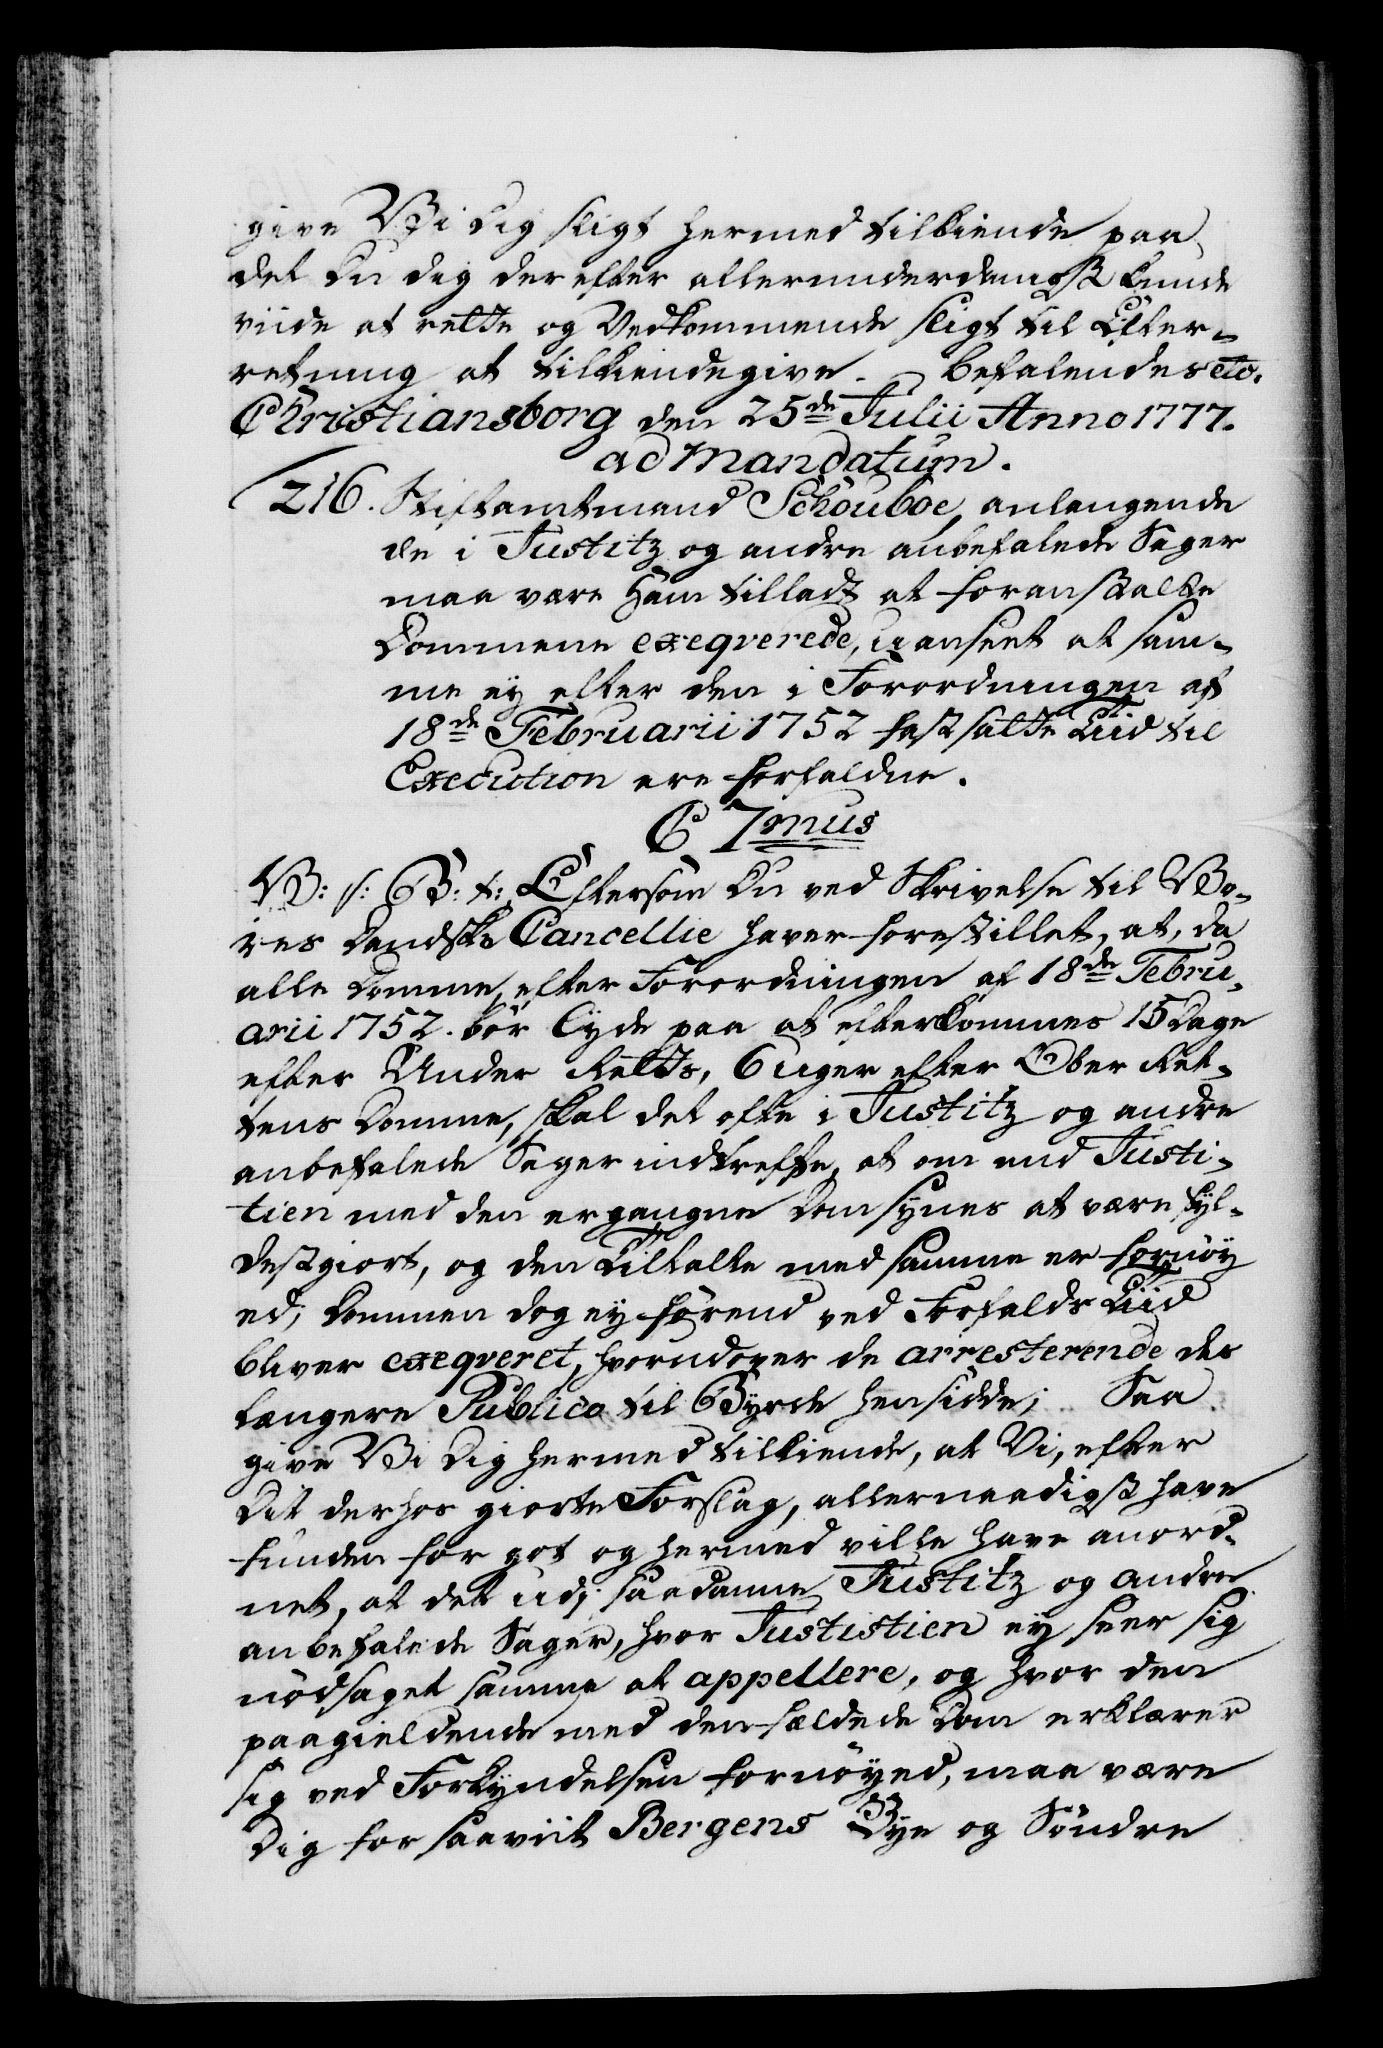 give Vi dig sligt hermed tilkiende paa
det Du dig derefter allerunderdanigst kunde
viide at rette og Vedkommende sligt til Efter-
retning at tilkiendegive. Befalendes etc.
Christiansborg den 25de Julii Anno 1777.
ad Mandatum.
216. Stiftamtmand Schouboe, anlangende
de i Justitz og andre anbefalede Sager
maa være Ham tilladt at foranstalte
Dommene exeqverede, uanseet at sam-
me ey efter den i Forordningen af
18de Februarii 1752 fastsatte Tiid til
Execution ere forfaldne.
C 7mus
V: s: G: t: Eftersom Du ved Skrivelse til Vo-
res Danske Cancellie haver forestillet, at, da
alle Domme, efter Forordningen af 18de Febru-
arii 1752. bør lyde paa at efterkommes 15 Dage
efter Under Retts, 6 uger efter Ober Ret-
tens Domme, skal det ofte i Justitz og andre
anbefalede Sager indtreffe, at om end Justi-
tien med den ergangne Dom synes at være fyl-
destgiort, og den Tiltalte med samme er fornøy
ed, Dommen dog ey førend ved Forfalds Tiid
bliver exeqveret, hvorudover de arresterende des
længere Publico til Byrde hensidde; Saa
give Vi Dig hermed tilkiende, at Vi, efter
Dit derhos giorte Forslag, allernaadigst have
funden for got og hermed ville have anord-
net, at det udj saadanne Justitz og andre
anbefalede Sager, hvor Justistien ey seer sig
nødsaget samme at appellere, og hvor den
paagieldende med den fældede Dom erklærer
sig ved Forkyndelsen fornøyed, maa være
Dig for saaviit Bergens Bye og Søndre